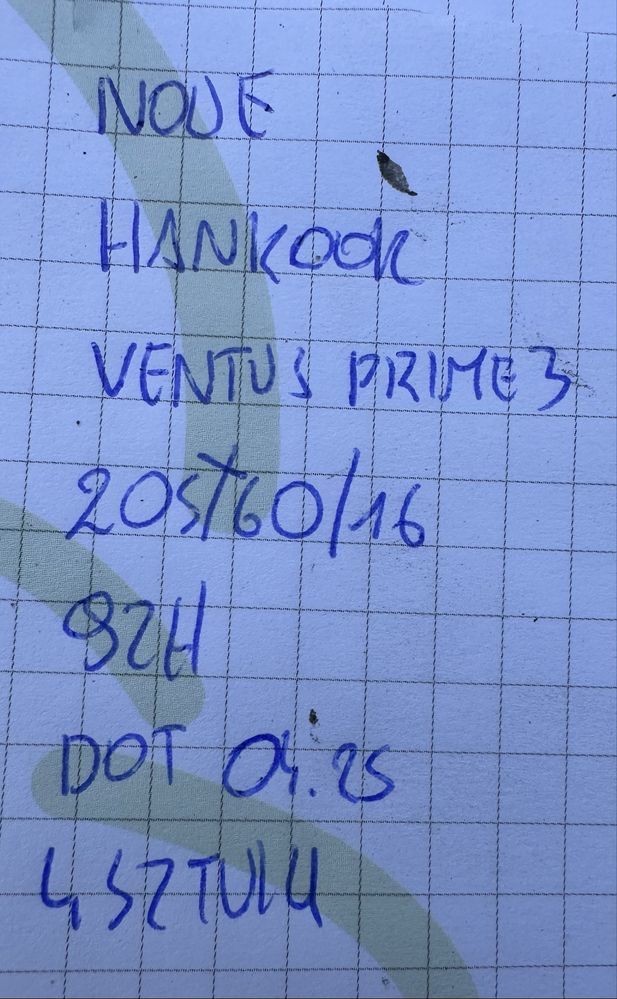 NOWE
HANKOOK
VENTUS PRIME 3
205/60/16
92H
DOT 04.25
4 SZTUKI